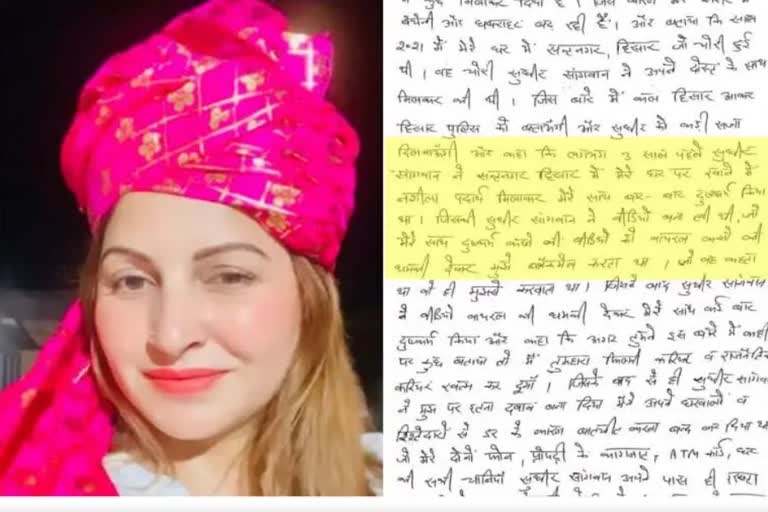 बेचैनी और घबराहट बढ़ रही है। और बताया कि साल
2021 में मेरे घर में सन्तनगर, हिसार जो चोरी हुई
थी। वह चोरी सुधीर सांगवान ने अपने दोस्त के साथ
मिलकर की थी। जिस बारे में कल हिसार आकर
हिसार पुलिस को बताऊंगी और सुधीर को कड़ी सजा
दिलवाऊँगी और कहा कि लगभग 3 साल पहले सुधीर
सांगवान ने सन्तनगर हिसार में मेरे घर पर खाने में
नशीला पदार्थ मिलाकर मेरे साथ बार-बार दुष्कर्म किया
था। जिसकी सुधीर सांगवान ने वीडियो बना ली थी, जो
मेरे साथ दुष्कर्म करने की वीडियो को वायरल करने की
धमकी देकर मुझे ब्लैकमेल करता था। जो वह कहता
था वो ही मुझसे करवाता था। जिसके बाद सुधीर सांगवान
ने वीडियो वायरल की धमकी देकर मेरे साथ कई बार
दुष्कर्म किया और कहा कि अगर तुमने इस बारे में कहीं
पर कुछ बताया तो मैं तुम्हारा फिल्मी करियर व राजनैतिक
करियर खत्म कर दूँगा। जिसके बाद से ही सुधीर सांगवान
ने मुझ पर इतना दबाव बना दिया मैंने अपने घरवालों व
रिश्तेदारों से डर के कारण बातचीत करना बन्द कर दिया था
जो मेरे दोनों फोन, प्रोपर्टी के कागजात, ATM कार्ड, घर
की सभी चाबियां सुधीर सांगवान अपने पास ही रखता